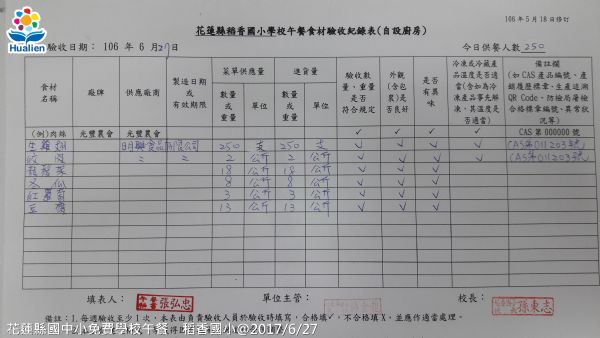 Hualien
106 年 5 月 18 日修訂
花蓮縣稻香國小學校午餐食材驗收紀錄表(自設廚房)
驗收日期: 106 年 6 月 27 日
今日供餐人數 250
食材名稱 廠牌 供應廠商 製造日期或有效期限 菜單供應量 進貨量 驗收數量、重量是否符合規定 外觀(含包裝)是否良好 是否有異味 冷凍或冷藏產品溫度是否適當(含如為冷凍產品事先解凍,其溫度是否適當) 備註欄(如 CAS 產品編號、產銷履歷標章、生產追溯 QR Code、防檢局屠檢合格標章編號、異常狀況等)
數量或重量 單位 數量或重量 單位
(例)肉絲 光豐農會 光豐農會 ✓ ✓ ✓ ✓ CAS 第 000000 號
生雞翅 食品有限公司 250 支 250 支 ✓ ✓ ✓ ✓ (CAS第011203號)
絞肉 〃 〃 2 公斤 2 公斤 ✓ ✓ ✓ ✓ (CAS第011203號)
18 公斤 18 公斤 ✓ ✓ ✓
冬瓜 8 公斤 8 公斤 ✓ ✓ ✓
紅蘿蔔 3 公斤 3 公斤 ✓ ✓ ✓
豆腐 13 公斤 13 公斤 ✓ ✓ ✓
填表人: 張弘忠 單位主管: 校長: 孫東志
備註:1.每週驗收至少 1 次,本表由負責驗收人員於驗收時填寫,合格填✓,不合格填 X,並應作適當處理。
花蓮縣國中小免費學校午餐 稻香國小@2017/6/27